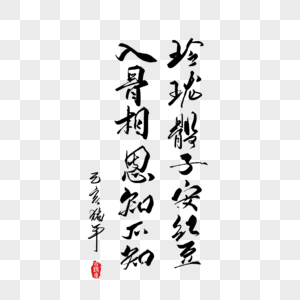 玲珑骰子安红豆
入骨相思知不知
己亥猪年